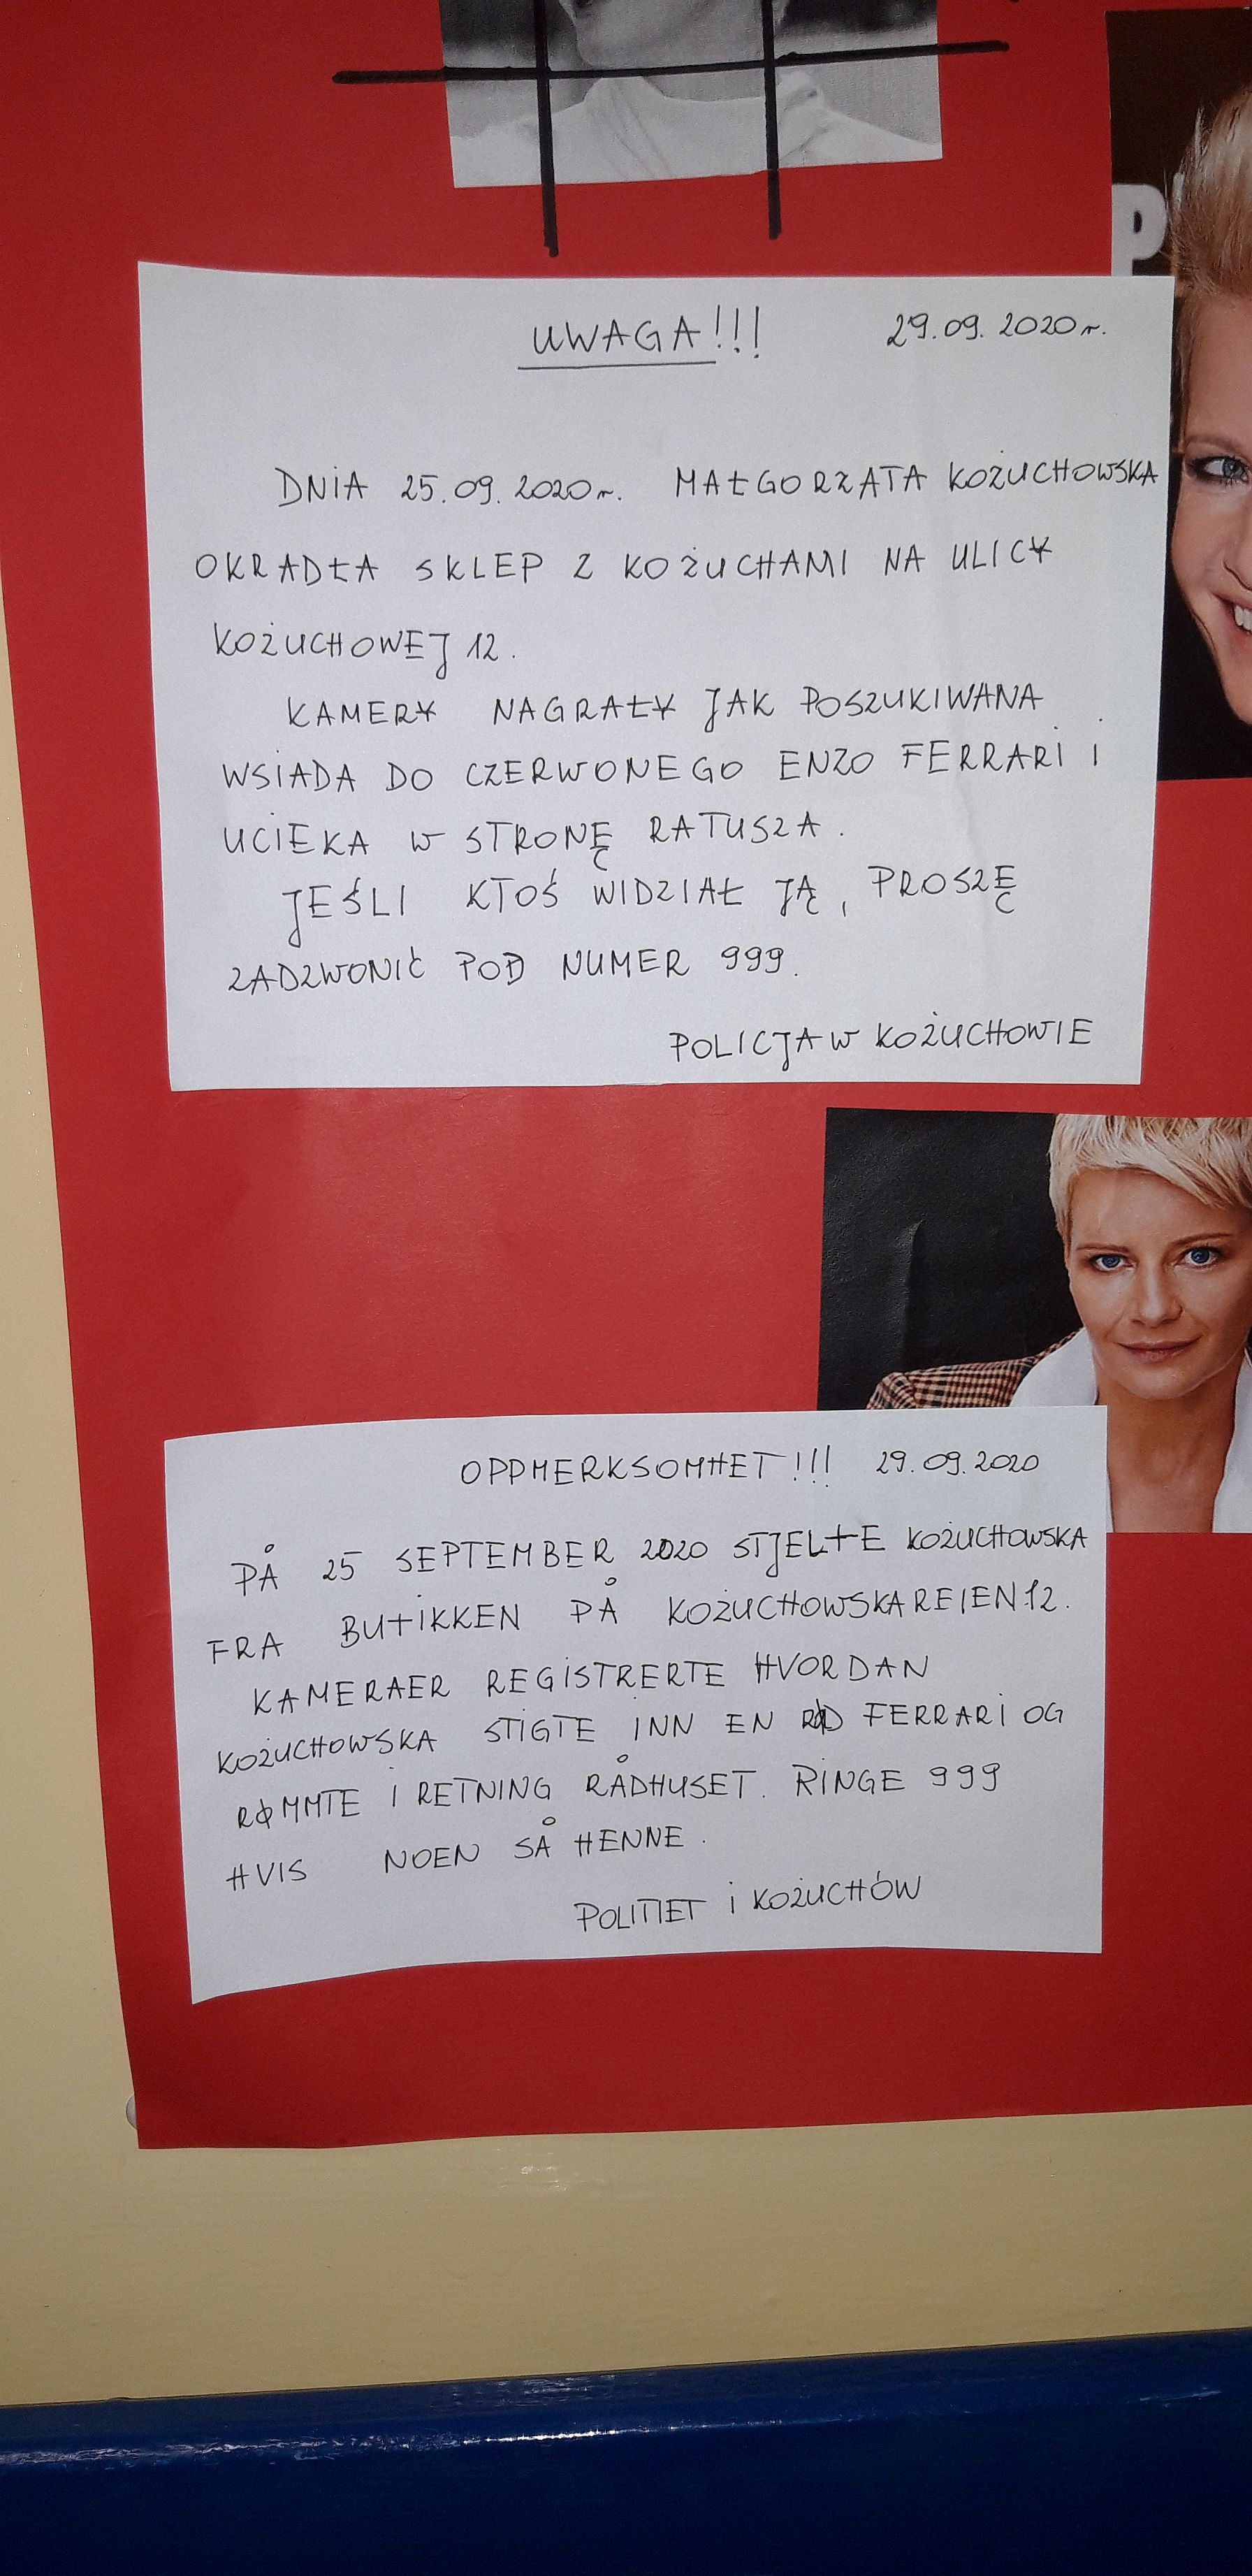 P
UWAGA!!! 29.09.2020r.
DNIA 25.09.2020r. MAŁGORZATA KOŻUCHOWSKA
OKRADŁA SKLEP Z KOŻUCHAMI NA ULICY
KOŻUCHOWEJ 12.
KAMERY NAGRAŁY JAK POSZUKIWANA
WSIADA DO CZERWONEGO ENZO FERRARI I
UCIEKA W STRONĘ RATUSZA.
JEŚLI KTOŚ WIDZIAŁ JĄ, PROSZĘ
ZADZWONIĆ POD NUMER 999.
POLICJA W KOŻUCHOWIE
OPPMERKSOMHET!!! 29.09.2020
PÅ 25 SEPTEMBER 2020 STJELTE KOŻUCHOWSKA
FRA BUTIKKEN PÅ KOŻUCHOWSKAREIEN 12.
KAMERAER REGISTRERTE HVORDAN
KOŻUCHOWSKA STIGTE INN EN RØD FERRARI OG
RØMMTE I RETNING RÅDHUSET. RINGE 999
HVIS NOEN SÅ HENNE.
POLITIET I KOŻUCHÓW